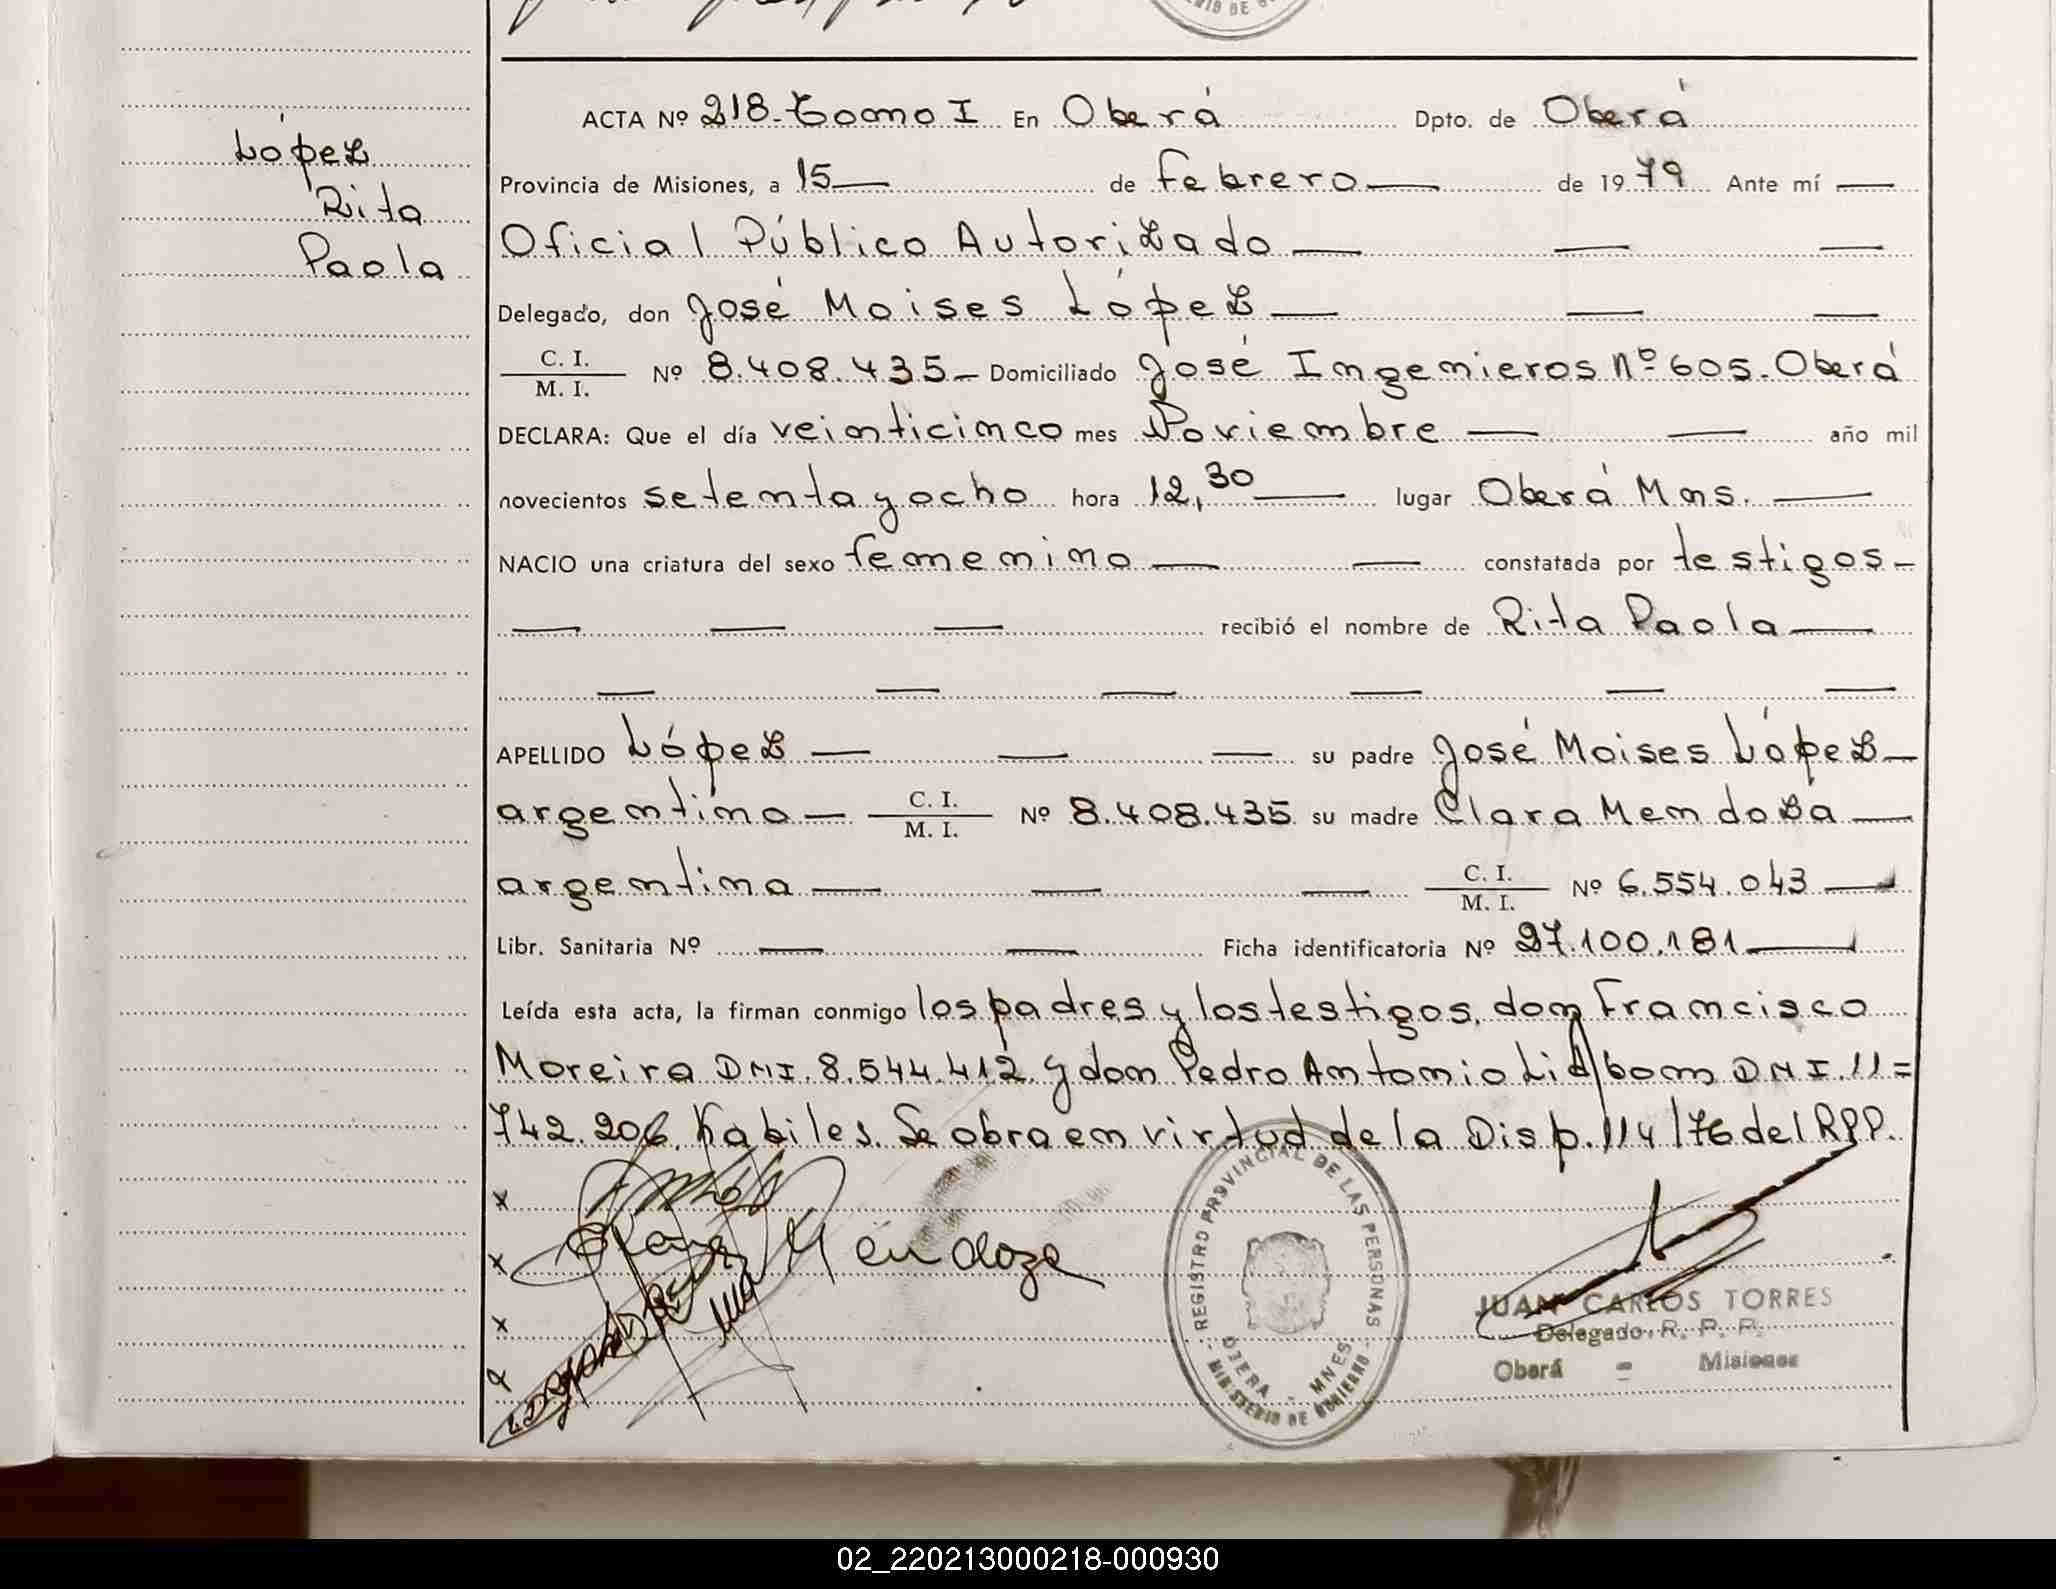 López
Rita
Paola
ACTA Nº 218-Tomo I En Oberá Dpto. de Oberá
Provincia de Misiones, a 15 de febrero de 1979 Ante mí
Oficial Público Autorizado
Delegado, don José Moises López
C. I.
M. I. Nº 8.408.435 Domiciliado José Ingenieros Nº 605. Oberá
DECLARA: Que el día veinticinco mes Noviembre año mil
novecientos setenta y ocho hora 12,30 lugar Oberá Mns.
NACIO una criatura del sexo femenino constatada por testigos
recibió el nombre de Rita Paola
APELLIDO López su padre José Moises López
argentino C. I.
M. I. Nº 8.408.435 su madre Clara Mendoza
argentina C. I.
M. I. Nº 6.554.043
Libr. Sanitaria Nº Ficha identificatoria Nº 27.100.181
Leída esta acta, la firman conmigo los padres y los testigos, don Francisco
Moreira DNI. 8.544.412 y don Pedro Antonio DNI. 11=
742.206. Habiles. Se obra en virtud de la Disp. 114/76 del RPP.
x
x Clara Mendoza
x
x
REGISTRO PROVINCIAL DE LAS PERSONAS
OBERA - MNES.
MINISTERIO DE GOBIERNO
JUAN CARLOS TORRES
Delegado R. P. P.
Oberá - Misiones
02_220213000218-000930